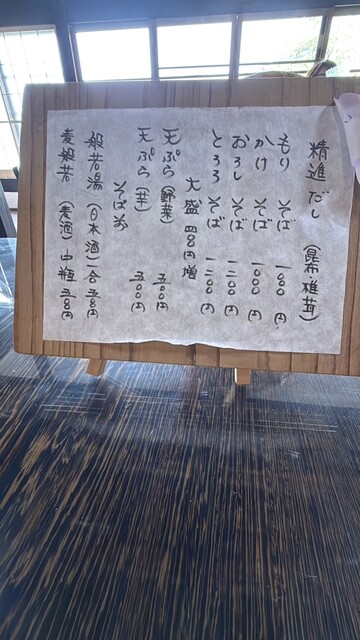 精進だし（昆布・椎茸）
もりそば 一〇〇〇円
かけそば 一〇〇〇円
おろしそば 一二〇〇円
とろろそば 一二〇〇円
大盛 四〇〇円増
天ぷら（野菜） 五〇〇円
天ぷら（芋） 五〇〇円
そば
般若湯（日本酒）一合 五〇〇円
麦般若（麦酒）中瓶 五〇〇円